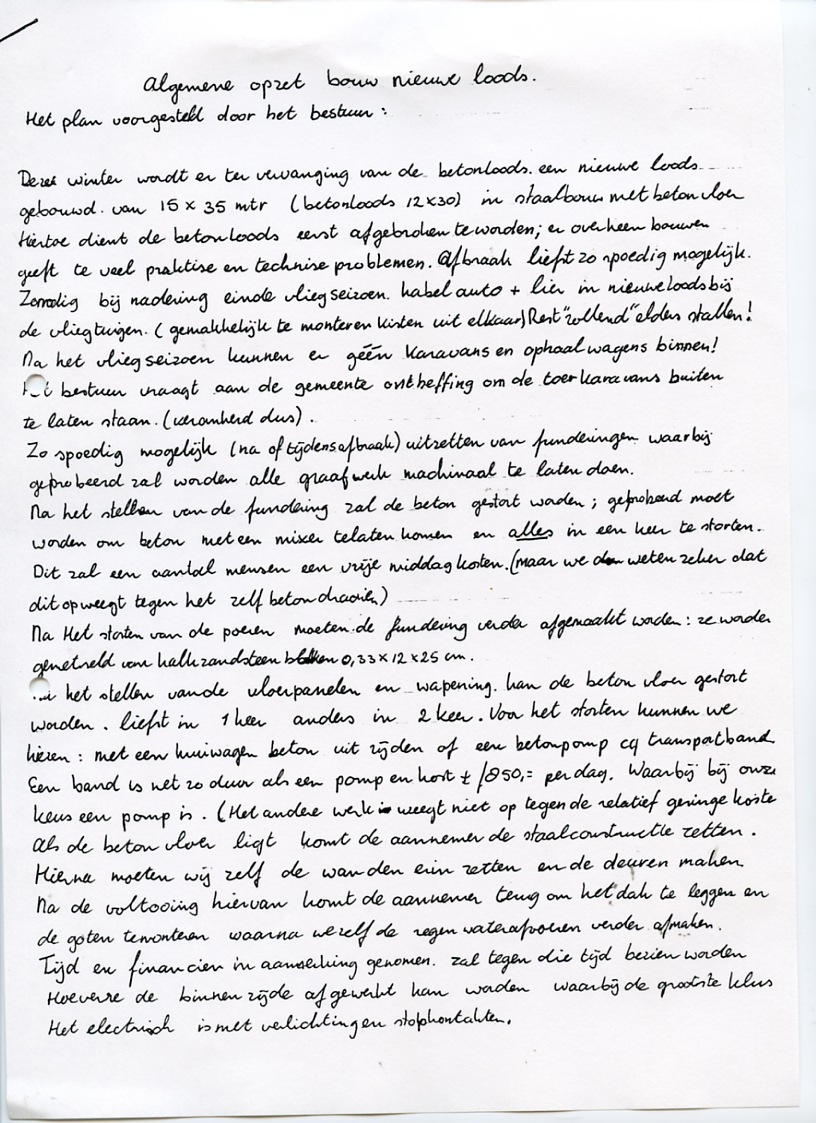 Algemene opzet bouw nieuwe loods.
Het plan voorgesteld door het bestuur :
Deze winter wordt er ter vervanging van de betonloods een nieuwe loods
gebouwd van 15 x 35 mtr (betonloods 12x30) in staalbouw met beton vloer
Hiertoe dient de betonloods eerst afgebroken te worden; er overheen bouwen
geeft te veel praktise en technise problemen. Afbraak liefst zo spoedig mogelijk.
Zonodig bij nadering einde vliegseizoen. kabel auto + lier in nieuwe loods bij
de vliegtuigen. (gemakkelijk te monteren kisten uit elkaar) Rest "rollend" elders stallen!
Na het vliegseizoen kunnen er géén karavans en ophaalwagens binnen!
bestuur vraagt aan de gemeente ontheffing om de toerkaravans buiten
te laten staan. (verankerd dus).
Zo spoedig mogelijk (na of tijdens afbraak) uitzetten van funderingen waarbij
geprobeerd zal worden alle graafwerk machinaal te laten doen.
Na het stellen van de fundering zal de beton gestort worden ; geprobeerd moet
worden om beton met een mixer te laten komen en alles in een keer te storten.
Dit zal een aantal mensen een vrije middag kosten. (maar we weten zeker dat
dit opweegt tegen het zelf betondraaien)
Na Het storten van de poeren moeten de fundering verder afgemaakt worden : ze worden
gemetseld van kalkzandsteen 0,33x12x25 cm.
het stellen van de vloerpanelen en wapening. kan de beton vloer gestort
worden. liefst in 1 keer anders in 2 keer. Voor het storten kunnen we
kiezen : met een kruiwagen beton uit rijden of een betonpomp cq transportband
Een band is net zo duur als een pomp en kost ± f 850,= per dag. Waarbij bij onze
keus een pomp is. (Het andere werk weegt niet op tegen de relatief geringe koste
Als de beton vloer ligt komt de aannemer de staalconstructie zetten.
Hierna moeten wij zelf de wanden erin zetten en de deuren maken.
Na de voltooing hiervan komt de aannemer terug om het dak te leggen en
de goten te monteren waarna we zelf de regenwaterafvoeren verder afmaken.
Tijd en financien in aanmerking genomen. zal tegen die tijd bezien worden
Hoeverre de binnenzijde afgewerkt kan worden waarbij de grootste klus
Het electrisch is met verlichting en stopkontakten.